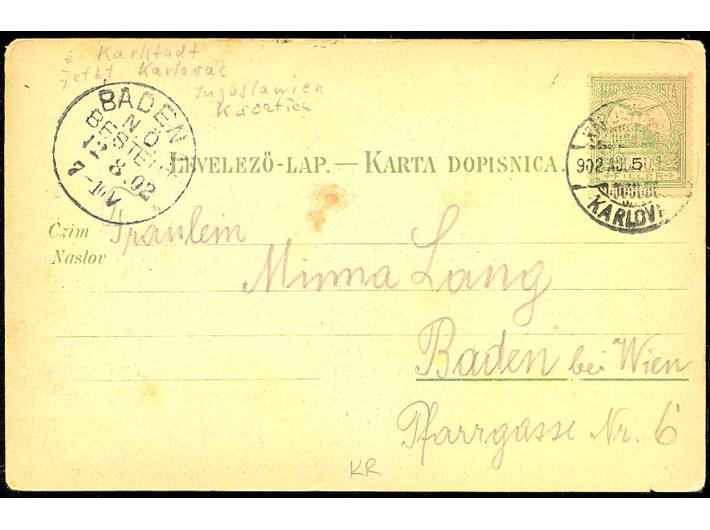 Karlstadt
jetzt Karlovac
Jugoslawien
Kroatien
BADEN
N.Ö
BESTELLT
12 8.02
7-10V
MAGYAR KIR. POSTA
5
FILLER
902 AUG
KARLOV
LEVELEZŐ-LAP. — KARTA DOPISNICA.
Czim
Naslov
Fräulein
Minna Lang
Baden bei Wien
Pfarrgasse Nr. 6
KR